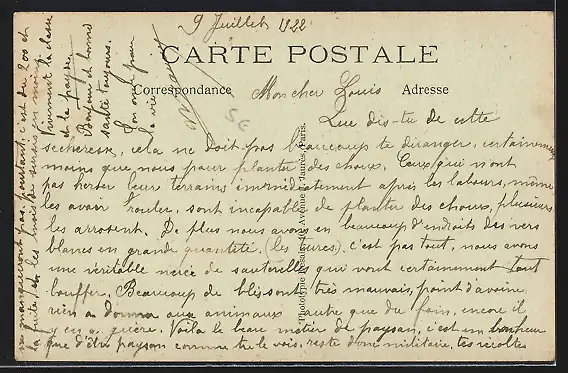 9 Juillet 1922
CARTE POSTALE
Correspondance
Adresse
Mon cher Louis
Que dis-tu de cette
secheresse, cela ne doit pas beaucoup te déranger, certainement
moins que nous pour planter des choux. Ceux qui n'ont
pas herser leur terrains immédiatement après les labours, même
les avoir rouler, sont incapables de planter des choux, plusieurs
les arrosent. De plus nous avons en beaucoup d'endroits des vers
blancs en grande quantité. (les tures). c'est pas tout, nous avons
une véritable de sauterelles qui vont certainement tout
bouffer. Beaucoup de blés sont très mauvais, point d'avoine
rien a donner aux animaux autre que du foin, encore il
y en a guère. Voila le beau métier de paysan, c'est un bonheur
que d'être paysan comme tu le vois, reste donc militaire, tes récoltes
ne manqueront pas, pourtant, c'est du 200 et
la fuite, et les mois de
la classe
et la paye.
Bonjour et bonne
santé toujours.
Ton ami pour
la vie
SE
Phototypie Vassellier, Avenue J. Jaurès, Paris